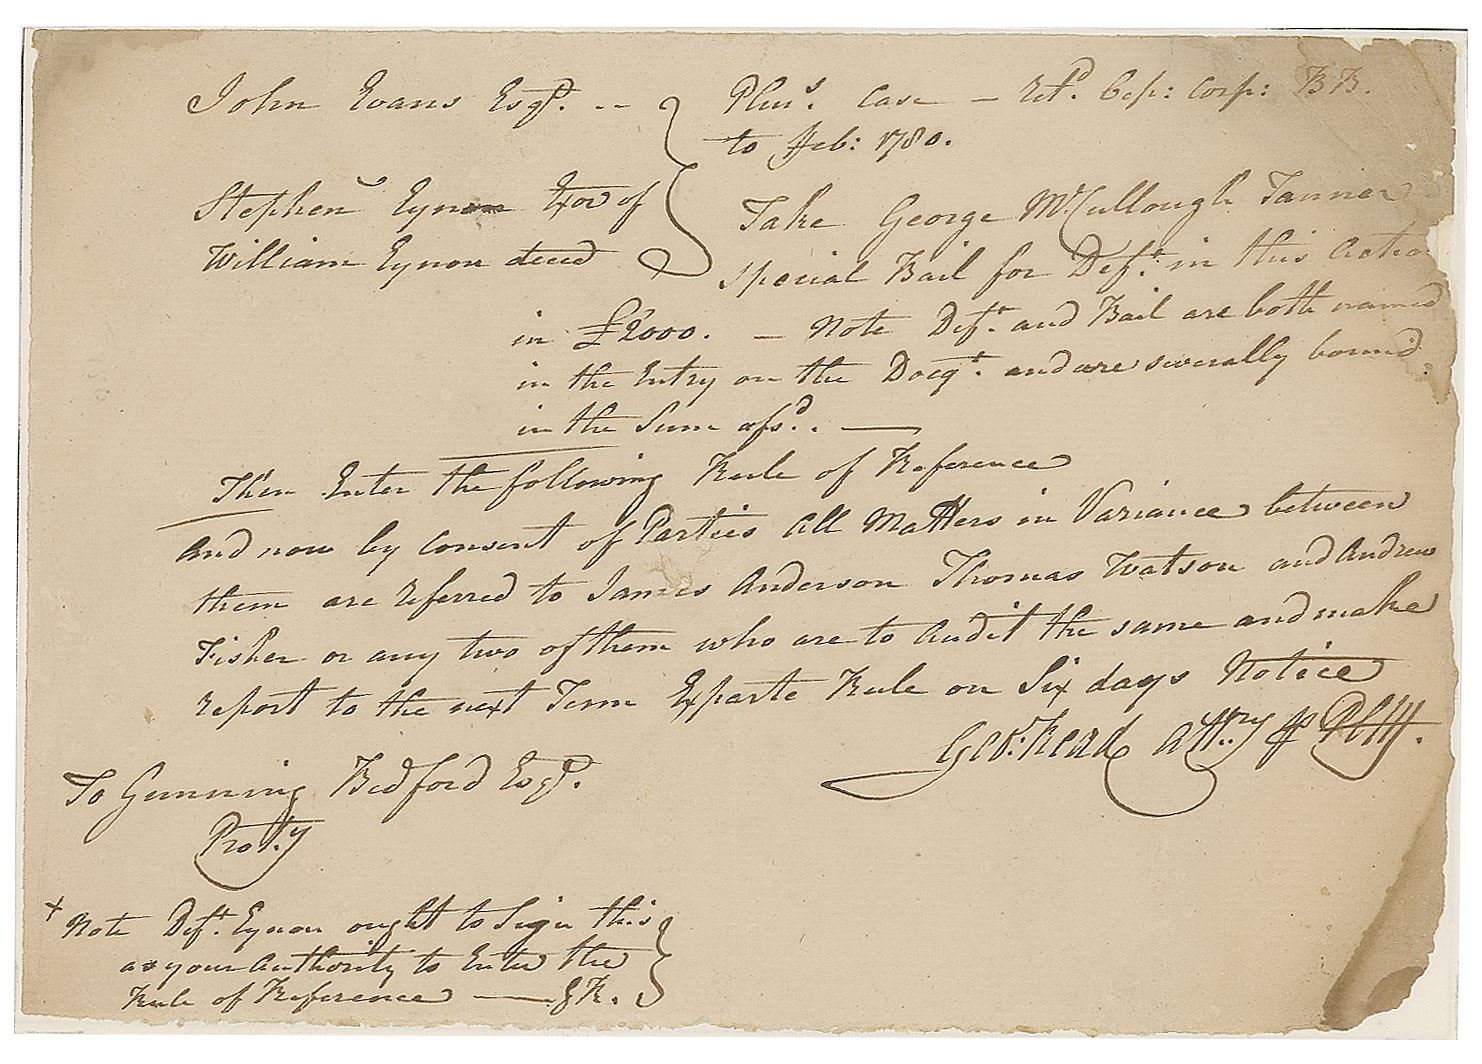 John Evans Esqr. --
Stephen Eynon Exor of
William Eynon deced
Plurs. Case — Retd. Cepi: Corp: BB.
to Feb: 1780.
Take George McCullough Tanner
special Bail for Deft. in this Action
in £2000. — Note Deft. and Bail are both named
in the Entry on the Docqt. and are severally bound
in the Sum afsd. —
Then Enter the following Rule of Reference
And now by Consent of Parties All Matters in Variance between
them are referred to James Anderson Thomas Watson and Andrew
Fisher or any two of them who are to Audit the same and make
report to the next Term Exparte Rule on Six days Notice
Geo: Read Attry for Pltff.
To Gunning Bedford Esqr.
Prot.y
+ Note Deft. Eynon ought to Sign this
as your Authority to Enter the
Rule of Reference — GR.